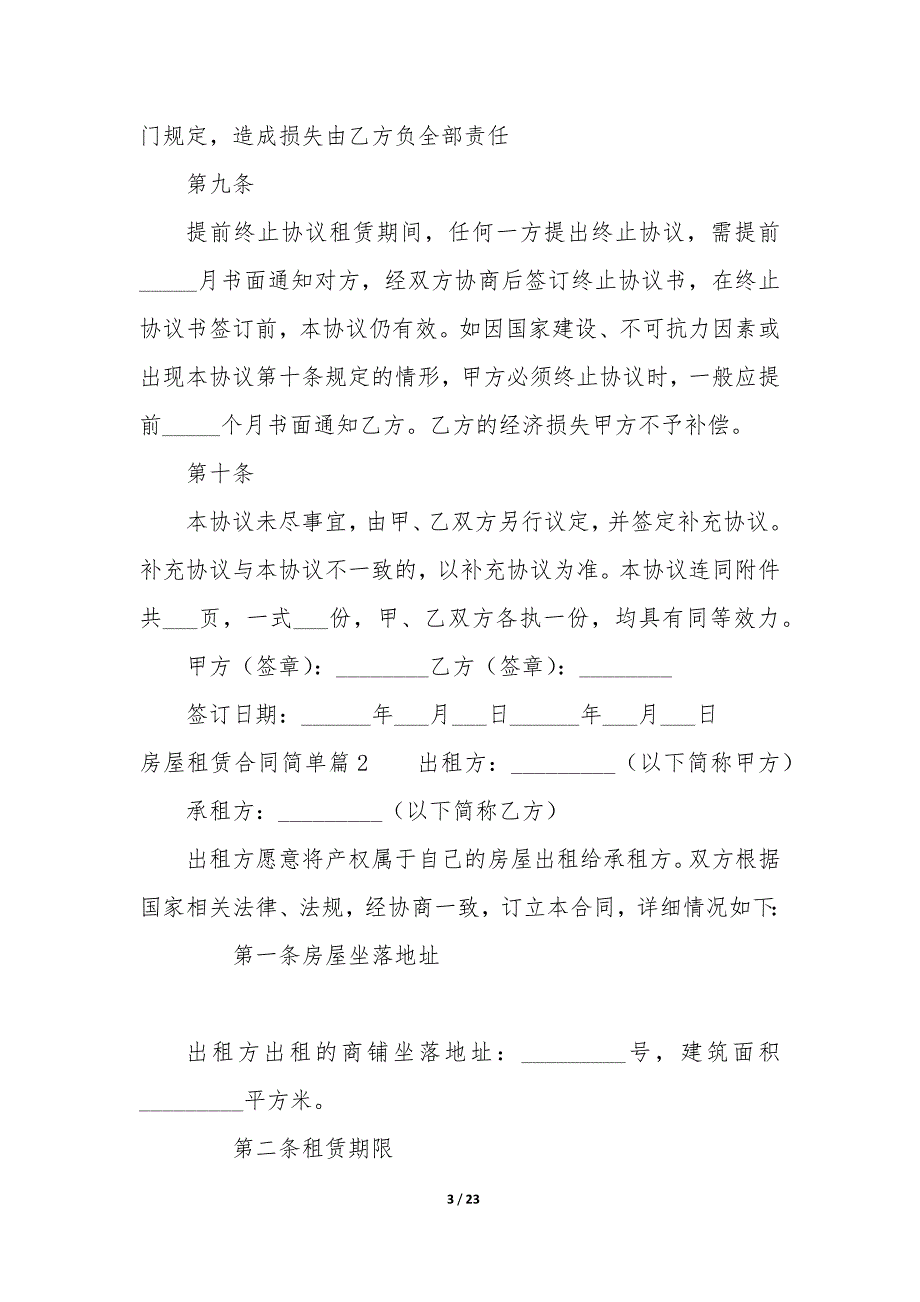 门规定，造成损失由乙方负全部责任
第九条
提前终止协议租赁期间，任何一方提出终止协议，需提前
_____月书面通知对方，经双方协商后签订终止协议书，在终止
协议书签订前，本协议仍有效。如因国家建设、不可抗力因素或
出现本协议第十条规定的情形，甲方必须终止协议时，一般应提
前_____个月书面通知乙方。乙方的经济损失甲方不予补偿。
第十条
本协议未尽事宜，由甲、乙双方另行议定，并签定补充协议。
补充协议与本协议不一致的，以补充协议为准。本协议连同附件
共___页，一式___份，甲、乙双方各执一份，均具有同等效力。
甲方（签章）：________乙方（签章）：________
签订日期：______年___月___日______年___月___日
房屋租赁合同简单篇2　　出租方：_________（以下简称甲方）
承租方：_________（以下简称乙方）
出租方愿意将产权属于自己的房屋出租给承租方。双方根据
国家相关法律、法规，经协商一致，订立本合同，详细情况如下：
第一条房屋坐落地址
出租方出租的商铺坐落地址：_________号，建筑面积
_________平方米。
第二条租赁期限
3 / 23